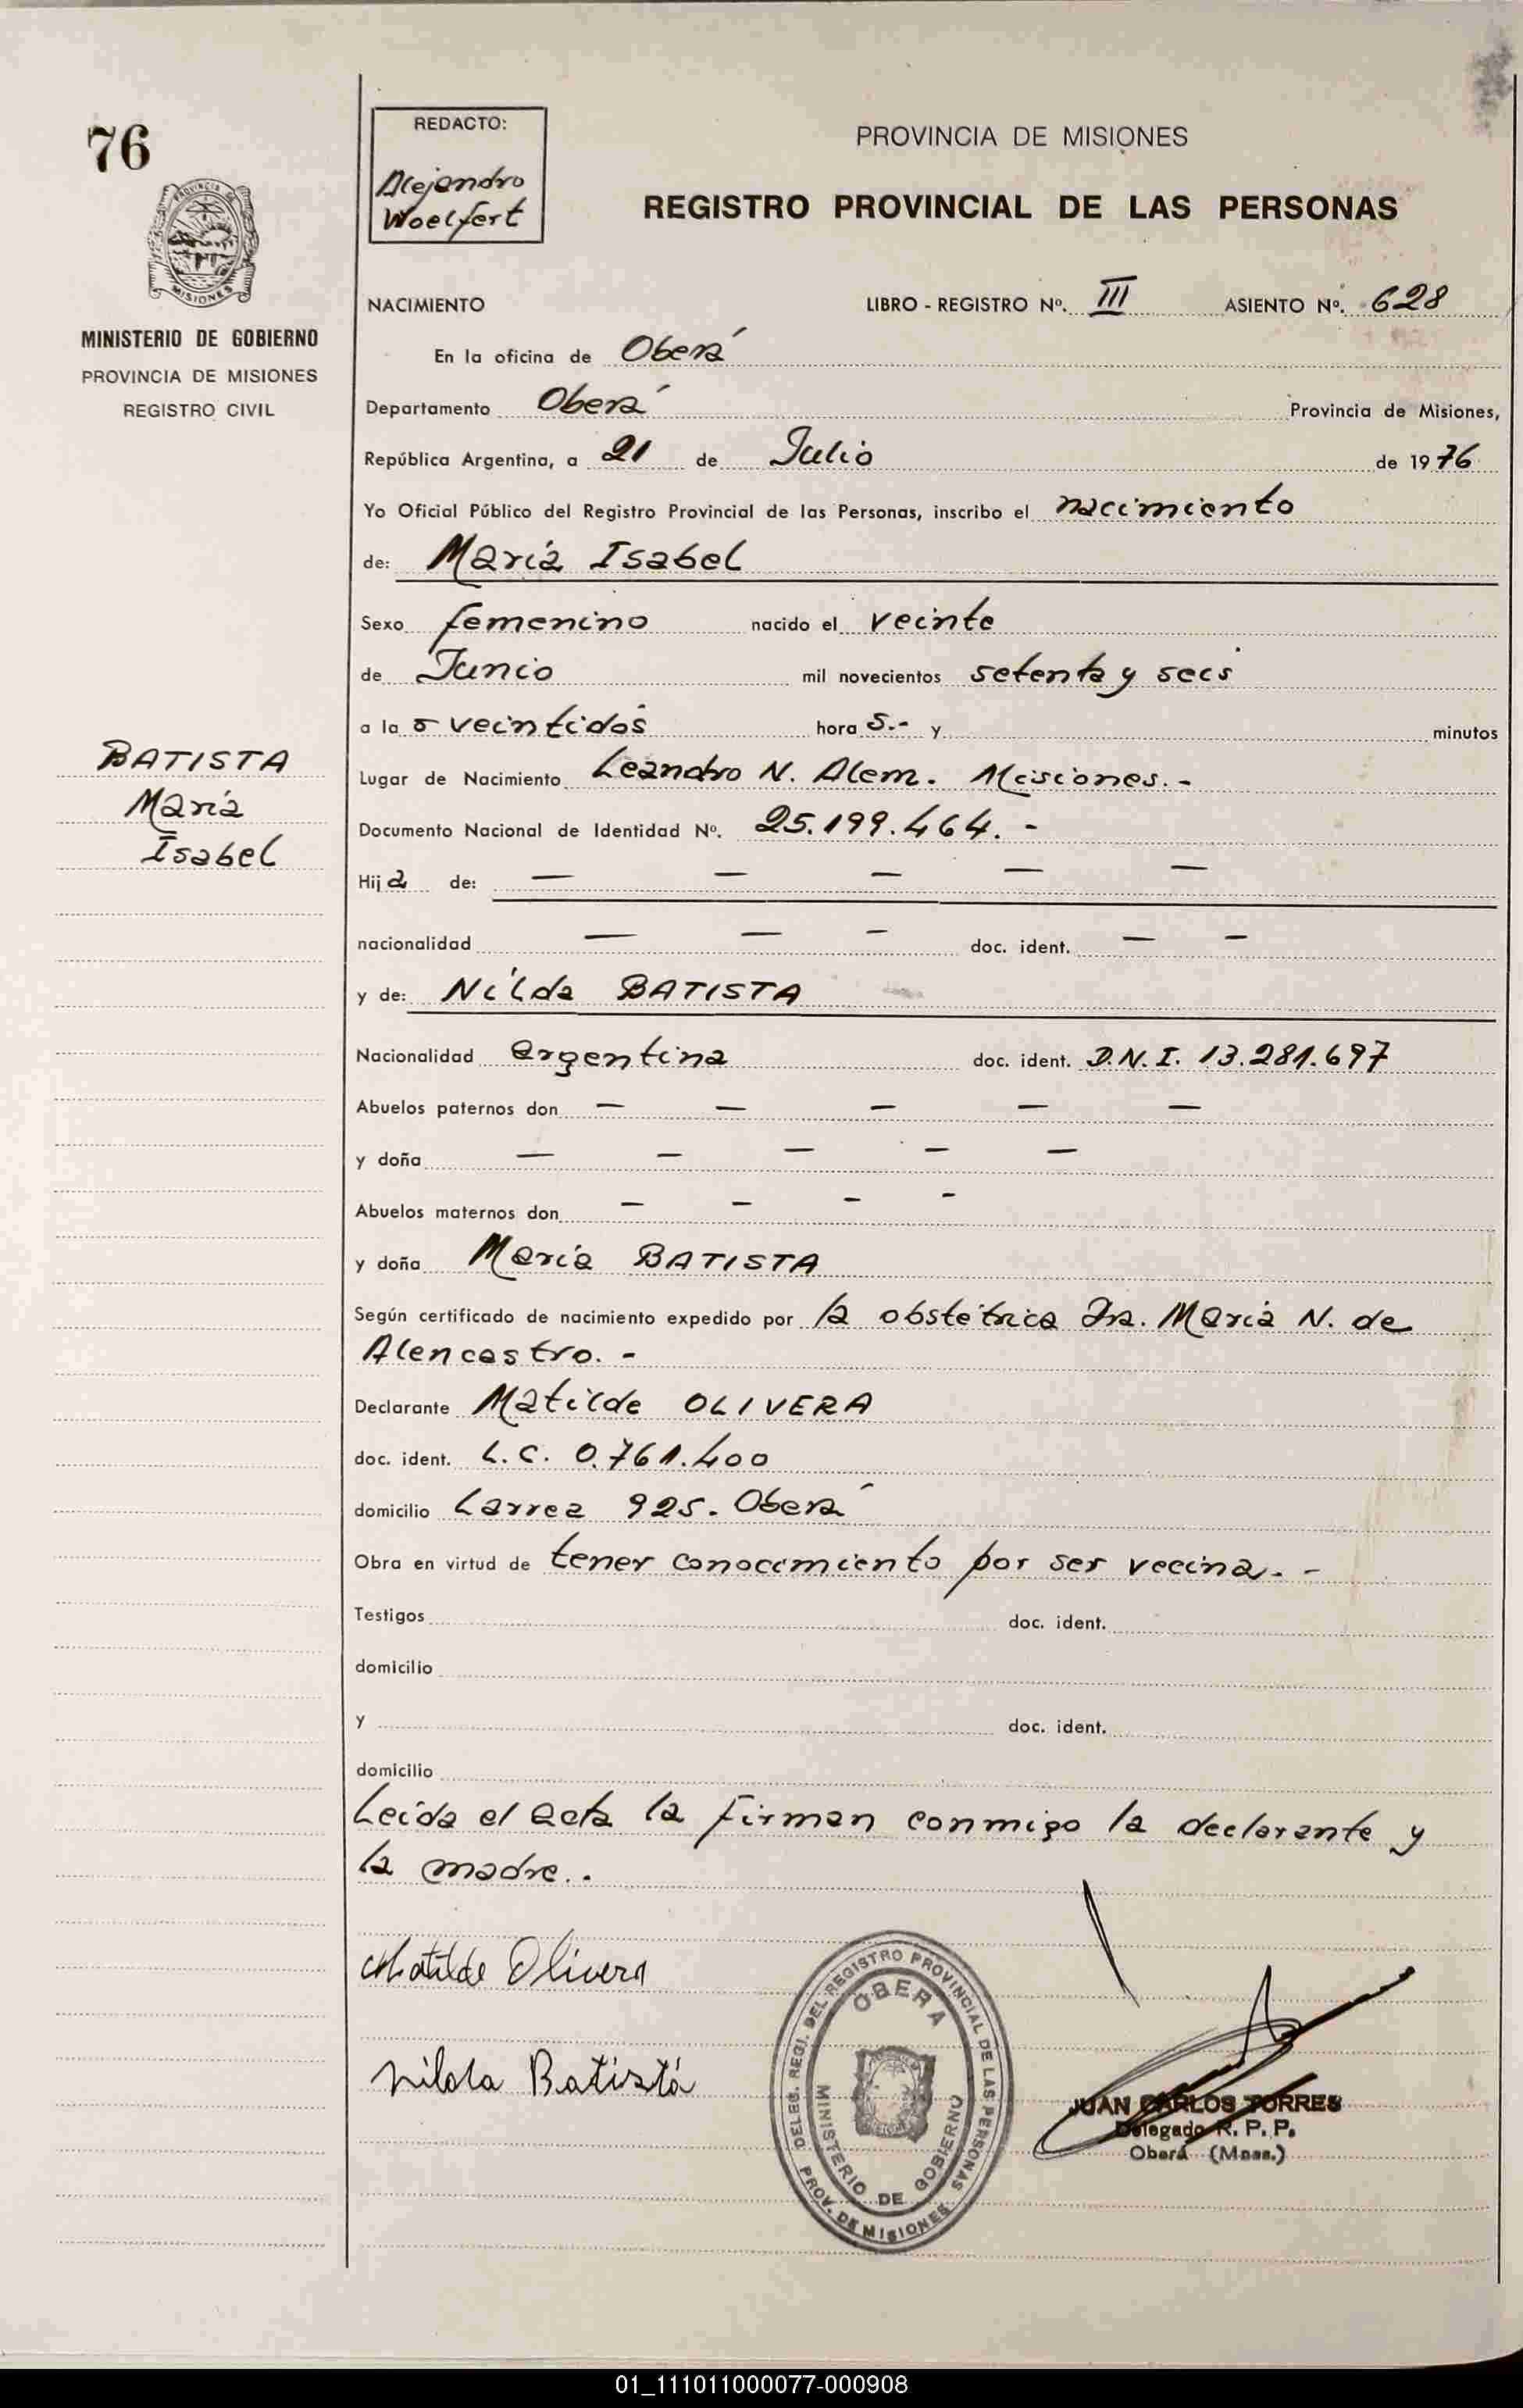 76
MINISTERIO DE GOBIERNO
PROVINCIA DE MISIONES
REGISTRO CIVIL
PROVINCIA DE MISIONES
BATISTA
María
Isabel
REDACTO:
Alejandro
Woelfert
PROVINCIA DE MISIONES
REGISTRO PROVINCIAL DE LAS PERSONAS
NACIMIENTO LIBRO - REGISTRO Nº. III ASIENTO Nº. 628
En la oficina de Oberá
Departamento Oberá Provincia de Misiones,
República Argentina, a 21 de Julio de 1976
Yo Oficial Público del Registro Provincial de las Personas, inscribo el nacimiento
de: María Isabel
Sexo femenino nacido el veinte
de Junio mil novecientos setenta y seis
a la s veintidos hora s.- y minutos
Lugar de Nacimiento Leandro N. Alem. Misiones.-
Documento Nacional de Identidad Nº. 25.199.464.-
Hija de: — — — — —
nacionalidad — — — doc. ident. — —
y de: Nilda BATISTA
Nacionalidad argentina doc. ident. D.N.I. 13.281.697
Abuelos paternos don — — — — —
y doña — — — — —
Abuelos maternos don — — — -
y doña María BATISTA
Según certificado de nacimiento expedido por la obstétrica Dra. María N. de
Alencastro.-
Declarante Matilde OLIVERA
doc. ident. L.C. 0.761.400
domicilio Larrea 925. Oberá
Obra en virtud de tener conocimiento por ser vecina.-
Testigos doc. ident.
domicilio
y doc. ident.
domicilio
Leída el acta la firman conmigo la declarante y
la madre..
Matilde Olivera
Nilda Batista
DELEG. REGI. DEL REGISTRO PROVINCIAL DE LAS PERSONAS
PROV. DE MISIONES
OBERA
MINISTERIO DE GOBIERNO
JUAN CARLOS TORRES
Delegado R. P. P.
Oberá (Mnes.)
01_111011000077-000908